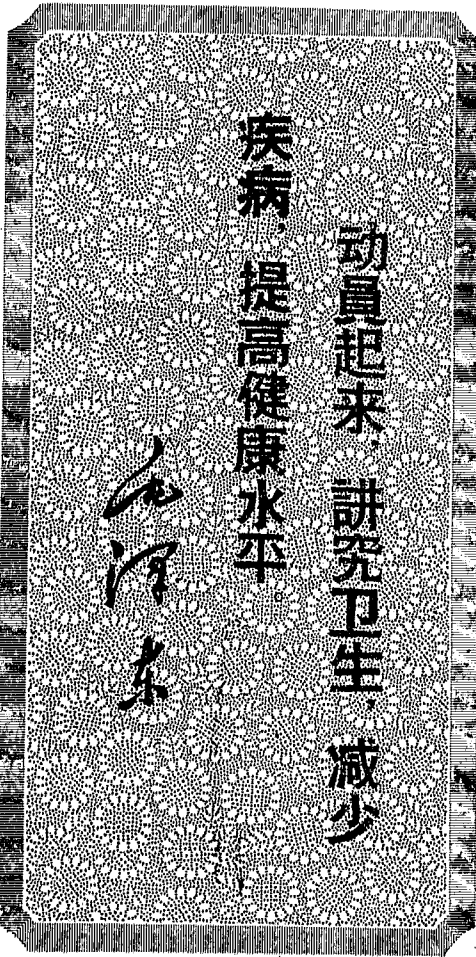 动員起来，讲究卫生，减少
疾病，提高健康水平
毛泽东